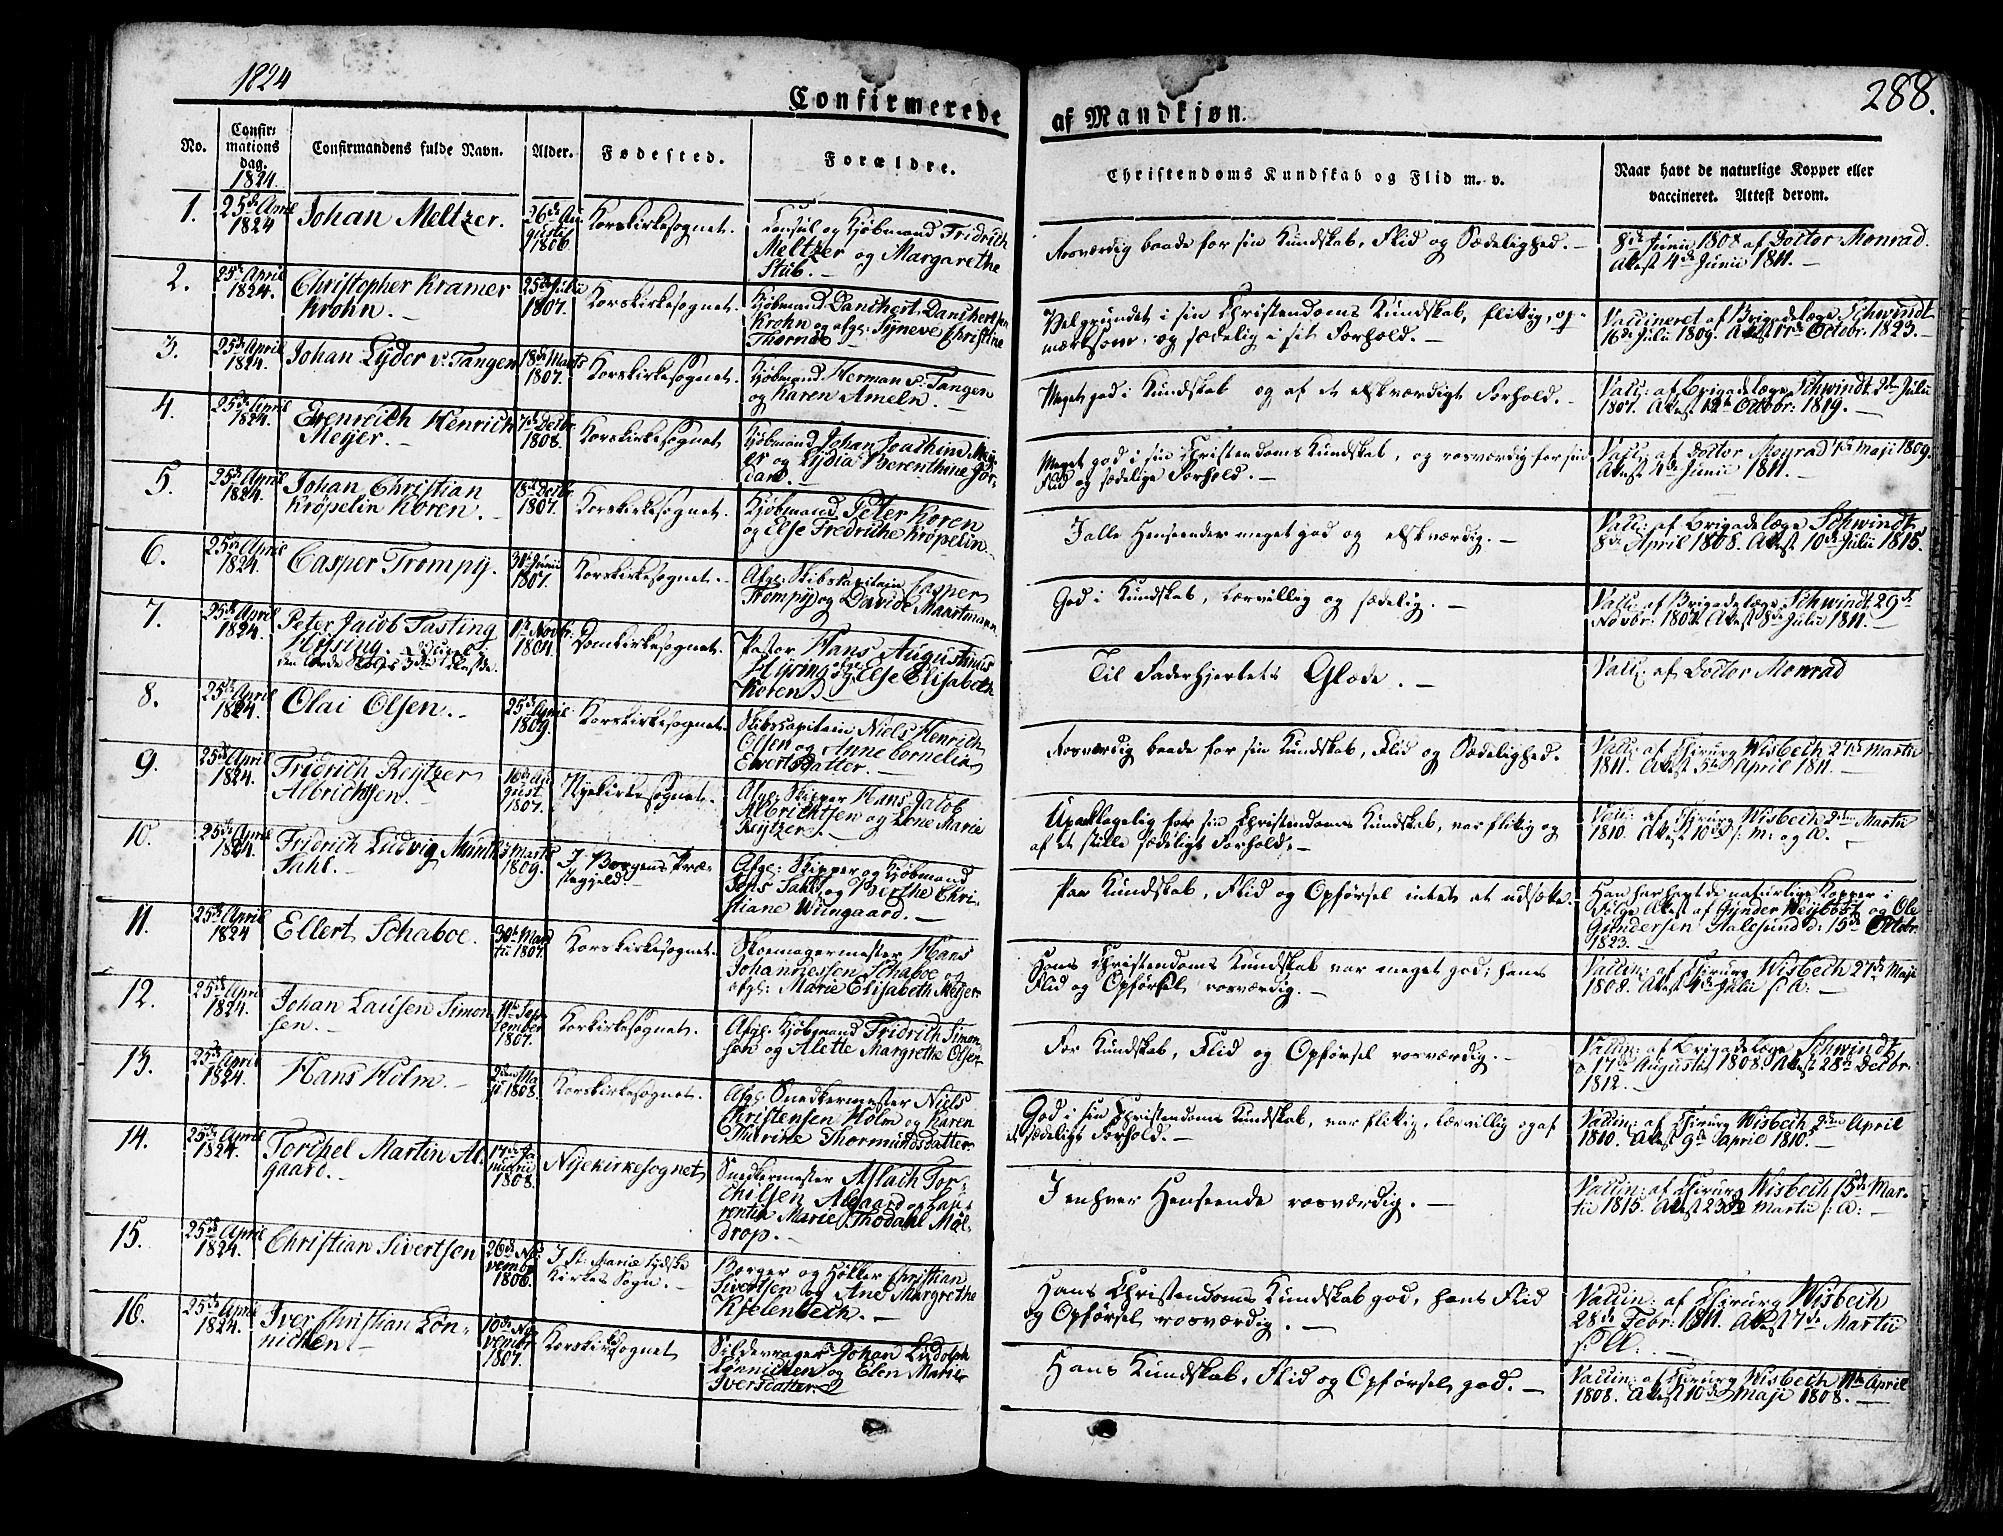 1824
288.
Confirmerede af Mandkjøn.
No.
Confir-
mations
dag.
1824.
Confirmandens fulde Navn.
Alder.
Fødested.
Forældre.
Christendoms Kundskab og Flid m. v.
Naar havt de naturlige Kopper eller
vaccineret. Attest derom.
1.
25de April
1824
Johan Meltzer.
26de Au
gusti
1806.
Korskirkesognet.
Consul og Kjøbmand Fridrich
Meltzer og Margarethe
Stub. —
Rosværdig baade for sin Kundskab, Flid og Sædelighed. —
8de Junii 1808 af Doctor Monrad.
Attest 4de Junii 1811. —
2.
25de April
1824.
Christopher Kramer
Krohn. —
25de Julii
1807.
Korskirkesognet.
Kjøbmand Danchert Danchertsen
Krohn og afgl: Syneve Christine
Velgrundet i sin Christendoms Kundskab, flittig, op-
mærksom, og sædelig i sit Forhold. —
Vaccineret af Brigadelæge Schwindt
16de Julii 1809. Attest 1ste Octobr. 1823. —
3.
25de April
1824.
Johan Lyder v: Tangen
18de Marts
1807.
Korskirkesognet.
Kjøbmand Herman v: Tangen
og Karen Ameln. —
Meget god i Kundskab og af et elskværdigt Forhold. —
Vacc: af Brigadelæge Schwindt 2den Julii
1807. Attest 12te Octobr: 1819. —
4.
25de April
1824.
Henrich
Meijer. —
7de Decbr
1808.
Korskirkesognet
Kjøbmand Johan Joachim Mey-
er og Lydia Berenthine Gör-
dard. —
Meget god i sin Christendoms Kundskab, og rosværdig for sin
Flid og sædelige Forhold. —
Vacc: af Doctor Monrad 1ste Maji 1809.
Attest 4de Junii 1811. —
5.
25de April
1824.
Johan Christian
Krøpelin Koren. —
18de Decbr
1807.
Korskirkesognet.
Kjøbmand Peter Koren
og Else Fredrikke Krøpelin. —
I alle Henseender meget god og elskværdig. —
Vacc: af Brigadelæge Schwindt
8de April 1808. Attest 10de Julii 1815.
6.
25de April
1824
Casper Trompy.
30te Junii
1807.
Korskirkesognet. —
Afgl: Skibskapitain Casper
Trompy og Davide Maartmann
God i Kundskab, lærvillig og sædelig. —
Vacc: af Brigadelæge Schwindt 29de
Novbr: 1807. Attest 8de Julii 1811. —
7.
25de April
1824.
Peter Jacob Tasting
Hysing.
11te Novbr.
1809.
Domkirkesognet.
Pastor Hans Augustinus
Hysing og Else Elisabeth
Koben. —
Til Faderhjertets Glæde. —
Vacc: af Doctor Monrad
8.
25de April
1824.
Olai Olsen. —
25de April
1809.
Korskirkesognet.
Skibscapitain Niels Henrich
Olsen og Anne Cornelia
Evertsdatter. —
Rosværdig baade for sin Kundskab, Flid og Sædelighed.
Vacc: af Chirurg Wisbech 27de Martii
1811. Attest 5te April 1811. —
9.
25de April
1824.
Fridrich Reytzer
Albrichtsen. —
16de Au
gust.
1807.
Nyekirkesognet.
Afgl: Skipper Hans Jacob
Albrichtsen og Lene Marie
Reytzer. —
Upaaklagelig for sin Christendoms Kundskab, var flittig og
af et stille sædeligt Forhold. —
Vacc: af Chirurg Wisbech 2den Martii
1810. Attest 10de s: M: og A: —
10.
25de April
1824.
Fridrich Ludvig Munthe
Dahl. —
Marts
1809.
I Borgens Præ-
stegjeld.
Afgl: Skipper og Kjøbmand
Jens Dahl, og Birthe Chri-
stiane Wiingaard. —
Paa Kundskab, Flid og Opførsel intet at udsætte.
Han har havt de naturlige Kopper i
Følge Attest af og Ole
Gundersen Aalesund d: 15de Octobr.
1823. —
11.
25de April
1824
Ellert Schaboe.
30te Mar
tii 1807.
Korskirkesognet.
Skomagermester Hans
Johannessen Schaboe og
afgl: Marie Elisabeth Meyer
Hans Christendoms Kundskab var meget god; hans
Flid og Opførsel rosværdig. —
Vaccin: af Chirurg Wisbech 27de Maji
1808. Attest 4de Julii s: A: —
12.
25de April
1824.
Johan Lausen Simon
sen. —
11te Sep
tember
1807.
Korskirkesognet.
Afgl: Kjøbmand Fridrich Simon-
sen og Alette Margrethe Olsen
For Kundskab, Flid og Opførsel rosværdig. —
Vaccin: af Brigadelæge Schwindt
17de Augusti 1808. Attest 28de Decbr.
1812. —
13.
25de April
1824.
Hans Holm. —
2den Ma
ji 1808.
Korskirkesognet.
Afgl: Snedkermester Niels
Christensen Holm og Karen
Marine Thormundsdatter
God i sin Christendoms Kundskab, var flittig, lærvillig og af
et sædeligt Forhold. —
Vaccin: af Chirurg Wisbech 2den April
1810. Attest 9de April 1810. —
14.
25de April
1824.
Torchel Martin Al-
gaard. —
17de Ja
nuarii
1808.
Nyekirkesognet
Snedkermester Aslach Tor-
chelsen Algaard og Lau-
rentia Marie Thodahl Møl-
drop. —
I enhver Henseende rosværdig. —
Vaccin: af Chirurg Wisbech 15de Mar-
tii 1815. Attest 23de Martii s: A: —
15.
25de April
1824.
Christian Sivertsen
26de No
vember
1806.
I St. Mariæ tydske
Kirkes Sogn.
Borger og Høkker Christian
Sivertsen og Ane Margrethe
Kielenbech. —
Hans Christendoms Kundskab god, hans Flid
og Opførsel rosværdig. —
Vaccin: af Chirurg Wisbech
28de Febr: 1811. Attest 7de Martii
s: A: —
16.
25de April
1824.
Iver Christian Løn-
nichen —
10de No
vembr
1807.
Korskirkesognet
Sildevrager Johan Ludolph
Lønnichen og Elen Marie
Iversdatter
Hans Kundskab, Flid og Opførsel god. —
Vaccin: af Chirurg Wisbech 11te April
1808. Attest 10de Maji 1808. —